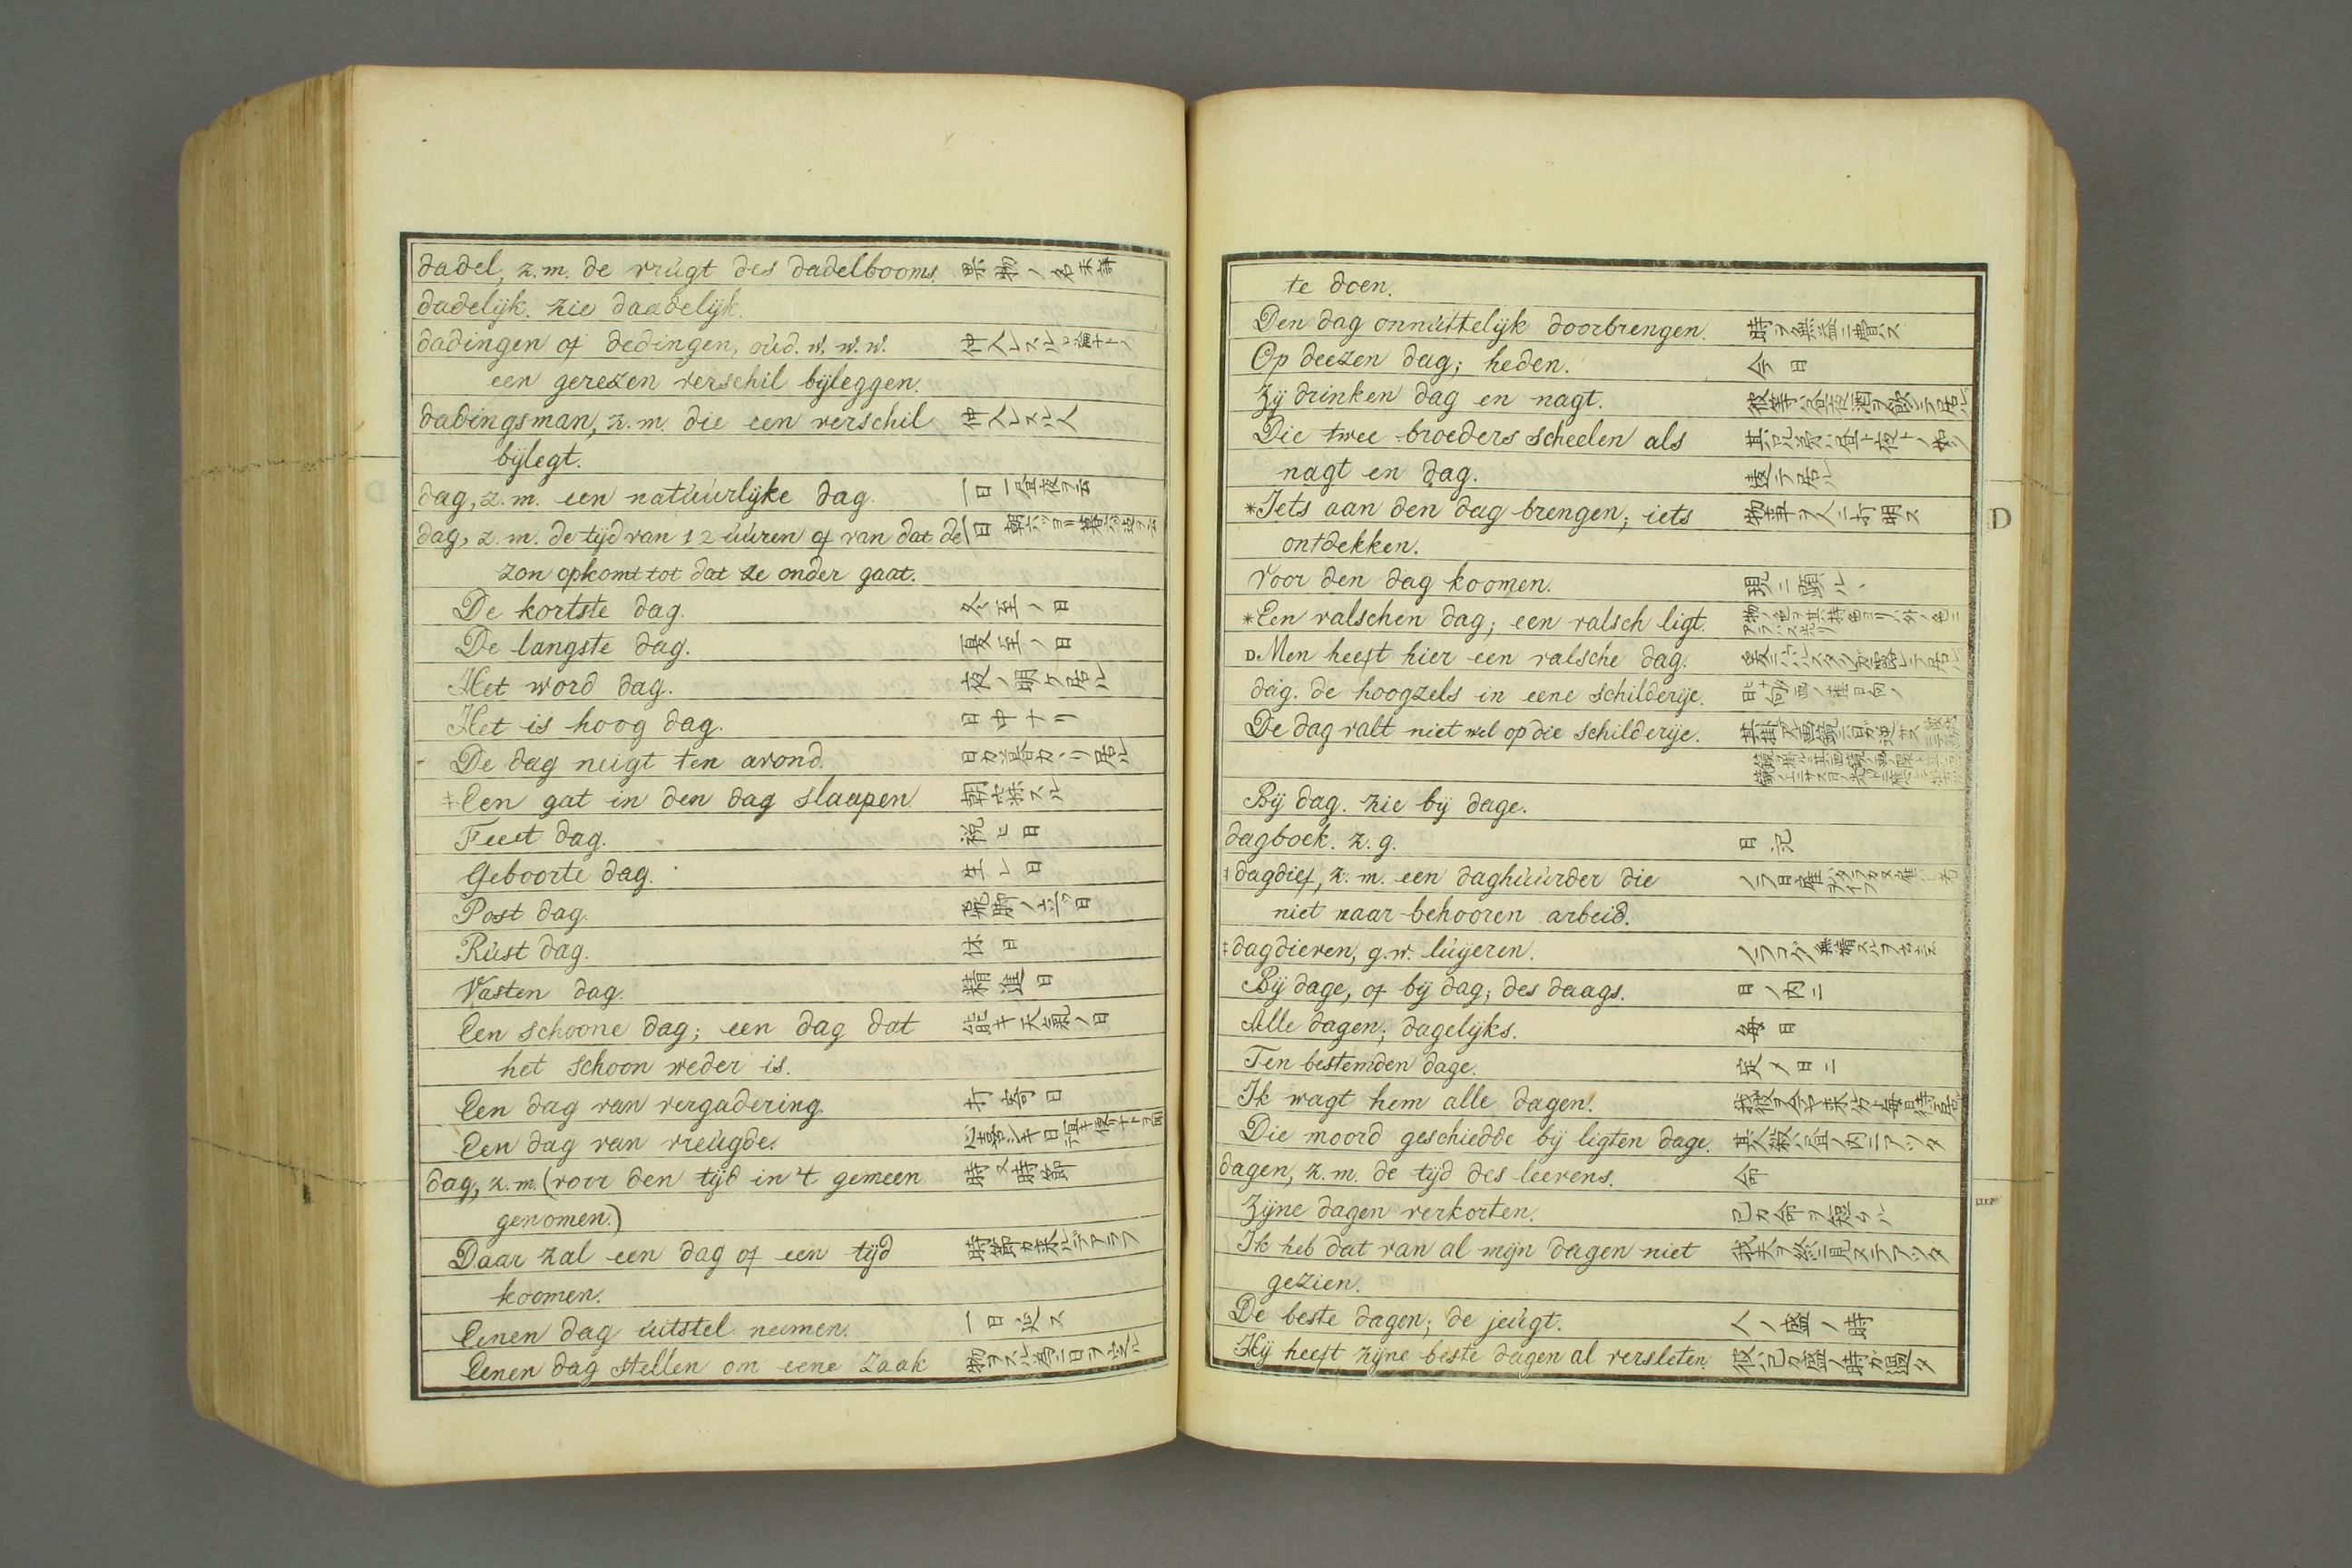 dadel, z.m. de vrúgt des dadelbooms. 果物ノ名未詳
dadelijk. zie daadelijk.
dadingen of dedingen, oúd. w. w. w. 仲人レスル
een gerezen verschil bijleggen.
dadingsman, z.m. die een verschil 仲人レスル人
bijlegt.
dag, z.m. een natúúrlijke dag. 一日 一昼夜ヲ云
dag, z.m. de tijd van 12 úúren of van dat de 一日
zon opkomt tot dat ze onder gaat.
De kortste dag. 冬至ノ日
De langste dag. 夏至ノ日
Het word dag. 夜ノ明ケ居ル
Het is hoog dag. 日中ナリ
De dag neigt ten avond. 日カ暮カヽリ居ル
‡Een gat in den dag slaapen. 朝寐スル
Feest dag. 祝ヒ日
Geboorte dag. 生レ日
Post dag. 飛脚ノ立ツ日
Rúst dag. 休日
Vasten dag. 精進日
Een schoone dag; een dag dat 能キ天氣ノ日
het schoon weder is.
Een dag van vergadering. 打寄日
Een dag van vreúgde.
dag, z.m. (voor den tijd in 't gemeen 時又時節
genomen.)
Daar zal een dag of een tijd 時節カ来ルデアラフ
koomen.
Eenen dag úitstel neemen. 一日延ス
Eenen dag stellen om eene zaak 物ヲスル為ニ日ヲ定ル
te doen.
Den dag onnúttelijk doorbrengen. 時ヲ無益ニ費ス
Op deezen dag; heden. 今日
Zij drinken dag en nagt. 彼等ハ昼夜酒ヲ飲ンテ居ル
Die twee broeders scheelen als 其兄弟ハ昼ト夜トノ如ク
nagt en dag. 違テ居ル
*Iets aan den dag brengen; iets 物事ヲ人ニ打明ス
ontdekken.
Voor den dag koomen. 現ニ顕ルヽ
*Een valschen dag; een valsch ligt.
D. Men heeft hier een valsche dag.
dag. de hoogzels in eene schilderije.
De dag valt niet wel op die schilderije.
Bij dag. zie bij dage.
dagboek. z.g. 日记
‡dagdief, z.m. een daghúúrder die
niet naar behooren arbeid.
‡dagdieven, g.w. lúijeren.
Bij dage, of bij dag; des daags. 日ノ内ニ
Alle dagen; dagelijks. 毎日
Ten bestemden dage. 定メ日ニ
Ik wagt hem alle dagen.
Die moord geschiedde bij ligten dage. 其人殺ハ昼ノ内ニアツタ
dagen, z.m. de tijd des leevens. 命
Zijne dagen verkorten. 己カ命ヲ短クル
Ik heb dat van al mijn dagen niet 我夫ヲ終ニ見ヌテアツタ
gezien.
De beste dagen; de jeúgt. 人ノ盛ノ時
Hij heeft zijne beste dagen al versleten. 彼ハ己カ盛ノ時カ過タ
D